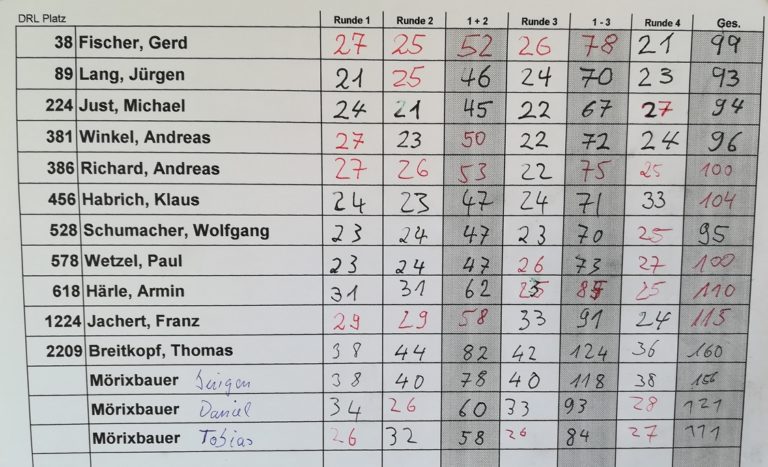 DRL Platz Runde 1 Runde 2 1 + 2 Runde 3 1 - 3 Runde 4 Ges.
38 Fischer, Gerd 27 25 52 26 78 21 99
89 Lang, Jürgen 21 25 46 24 70 23 93
224 Just, Michael 24 21 45 22 67 27 94
381 Winkel, Andreas 27 23 50 22 72 24 96
386 Richard, Andreas 27 26 53 22 75 25 100
456 Habrich, Klaus 24 23 47 24 71 33 104
528 Schumacher, Wolfgang 23 24 47 23 70 25 95
578 Wetzel, Paul 23 24 47 26 73 27 100
618 Härle, Armin 31 31 62 85 25 110
1224 Jachert, Franz 29 29 58 33 91 24 115
2209 Breitkopf, Thomas 38 44 82 42 124 36 160
Mörixbauer Jürgen 38 40 78 40 118 38 156
Mörixbauer Daniel 34 26 60 33 93 28 121
Mörixbauer Tobias 26 32 58 26 84 27 111